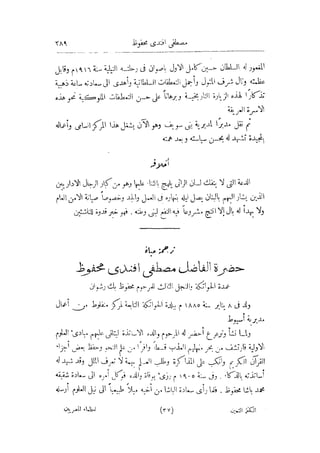 مصطفى افندى محفوظ
٣٨٩
المغفور له السلطان حسين كامل الاول باصوان فى رحلته النيلية سنة ١٩١٦ م وقابل
عظمته ونال شرف المثول وأجمل التعطفات السلطانية وأهدى الى سعادته ساعة ذهبية
تذكارا لهذه الزيارة التاريخية وبرهانا على حسن التعطفات الملوكية نحو هذه
الاسرة العريقة
ثم نقل مديرا لمديرية بنى سويف وهو الآن يشغل هذا المركز السامى وأعماله
المجيدة تشهد له بحسن سياسته وبعد همته
أخلاقه
الدعة التى لا ينفك لسان الرائى يلهج بالثناء عليها وهو من كبار الرجال الاداريين
الذين يشار اليهم بالبنان يصل ليله بنهاره فى العمل والجد وخصوصا صيانة الامن العام
ولا يهدأ له بال إلا اذا نتج مشروعا فيه النفع لبنى وطنه . فهو خير قدوة للناشئين
ترجمة حياة
حضرة الفاضل مصطفى افندى محفوظ
عمدة الحواتكة والنجل الثالث للمرحوم محفوظ بك رشوان
ولد فى ٨ يناير سنة ١٨٨٥ م ببلدة الحواتكة التابعة لمركز منفلوط من أعمال
مديرية أسيوط
ولما نشأ وترعرع أحضر له المرحوم والده الاساتذة ليتلقى عليهم مبادئ العلوم
الاولية فارتشف من بحر منهلهم العذب قسطا وافرا من علم النحو وحفظ بعض أجزاء
القرآن الكريم وانكب على المذاكرة وطلب العلم بهمة لا تعرف الملل وقد شهد له
أساتذته بالذكاء . وفى سنة ١٩٠٥ م رزئ بوفاة والده فوكل أمره الى سعادة شقيقه
محمد باشا محفوظ . فلما رأى سعادة الباشا من أخيه ميلا طبيعيا الى نيل العلوم أرسله
الكنز الثمين
(٣٧)
لعظماء المصريين